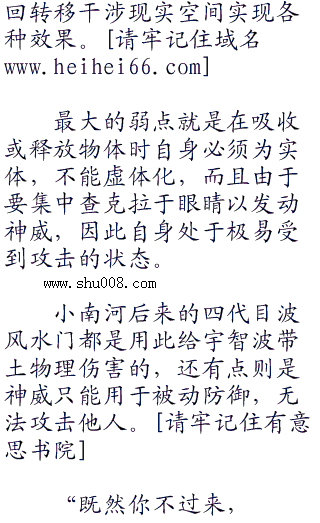 回转移干涉现实空间实现各
种效果。[请牢记住域名
www.heihei66.com]
最大的弱点就是在吸收
或释放物体时自身必须为实
体，不能虚体化，而且由于
要集中查克拉于眼睛以发动
神威，因此自身处于极易受
到攻击的状态。
www.shu008.com
小南河后来的四代目波
风水门都是用此给宇智波带
土物理伤害的，还有点则是
神威只能用于被动防御，无
法攻击他人。[请牢记住有意
思书院]
“既然你不过来，